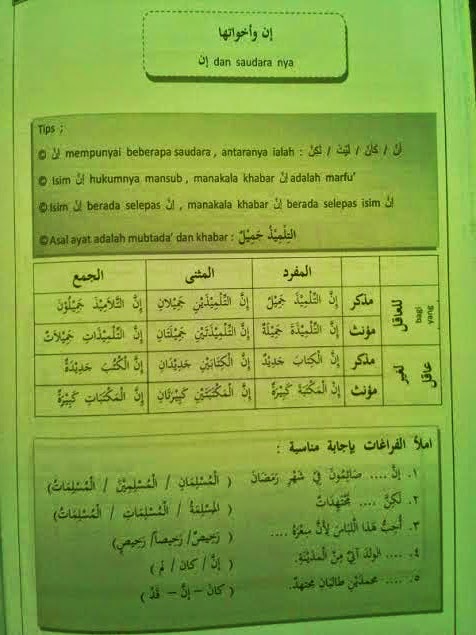 إن وأخواتها
إن dan saudara nya
Tips ;
© إنّ mempunyai beberapa saudara , antaranya ialah : أنّ / كأنّ / ليت / لكنّ
© Isim إنّ hukumnya mansub , manakala khabar إنّ adalah marfu'
© Isim إنّ berada selepas إنّ , manakala khabar إنّ berada selepas isim إنّ
©Asal ayat adalah mubtada' dan khabar : التِلْمِيْذُ جَمِيْلٌ
المفرد المثنى الجمع
للعاقل bagi yang مذكر إِنَّ التِّلْمِيْذَ جَمِيْلٌ إِنَّ التِّلْمِيْذَيْنِ جَمِيْلَانِ إِنَّ التَّلَامِيْذَ جَمِيْلُوْنَ
مؤنث إِنَّ التِّلْمِيْذَةَ جَمِيْلَةٌ إِنَّ التِّلْمِيْذَتَيْنِ جَمِيْلَتَانِ إِنَّ التِّلْمِيْذَاتِ جَمِيْلَاتٌ
لغير عاقل مذكر إِنَّ الْكِتَابَ جَدِيْدٌ إِنَّ الْكِتَابَيْنِ جَدِيْدَانِ إِنَّ الْكُتُبَ جَدِيْدَةٌ
مؤنث إِنَّ الْمَكْتَبَةَ كَبِيْرَةٌ إِنَّ الْمَكْتَبَتَيْنِ كَبِيْرَتَانِ إِنَّ الْمَكْتَبَاتِ كَبِيْرَةٌ
املأ الفراغات بإجابة مناسبة :
١. إِنَّ .... صَائِمُوْنَ فِيْ شَهْرِ رَمَضَانَ ( الْمُسْلِمَانِ / الْمُسْلِمِيْنَ / الْمُسْلِمَاتُ)
٢. لَكِنَّ .... مُجْتَهِدَاتٌ ( المُسْلِمَةُ / الْمُسْلِمَاتِ / الْمُسْلِمَاتُ)
٣. أُحِبُّ هَذَا اللِّبَاسَ لِأَنَّ سِعْرَهُ .... ( رَخِيصٌ/ رَخِيصاً/ رَخِيصٍ)
٤. .... الولدَ آتيٌ مِنَ الْمَدِيْنَةِ. ( إنَّ / كان / لم )
٥. .... محمدَيْنِ طالبَانِ مجتهدَ. ( كان – إنَّ – قَدْ )